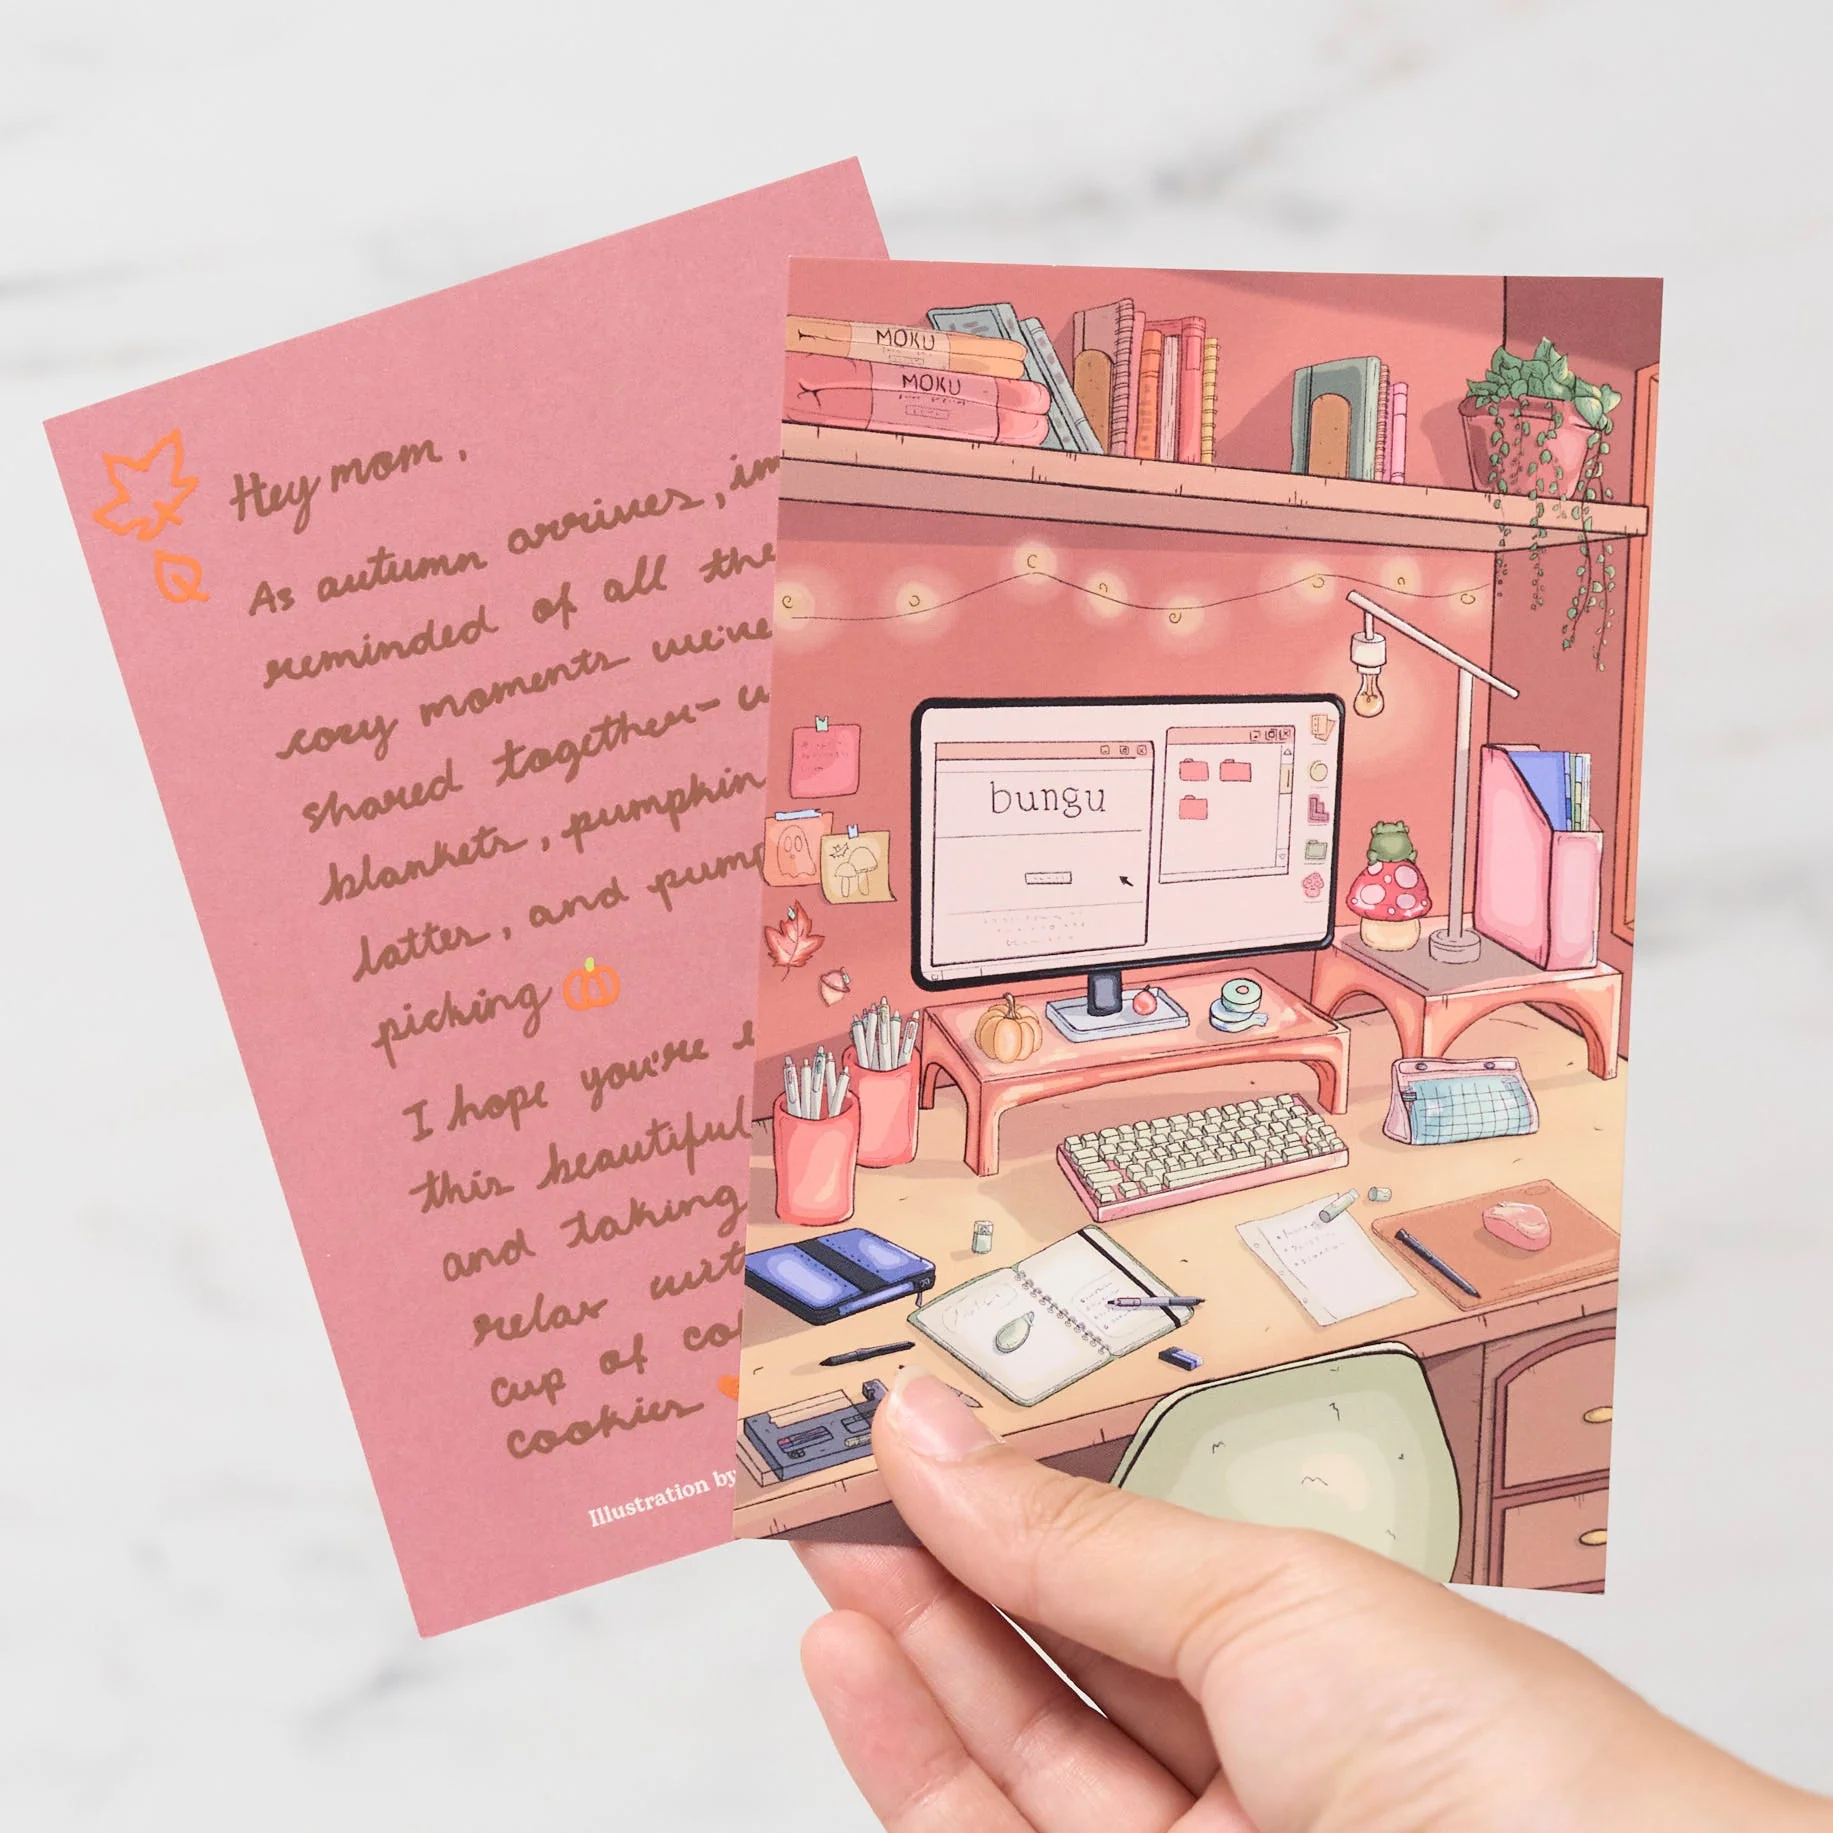 Hey mom,
As autumn arrives, im
reminded of all the
cozy moments we've
shared together-
blankets, pumpkin
latter, and pump
picking
I hope you're
this beautiful
and taking
relax wit
cup of co
cookies
Illustration by
MOKU
MOKU
bungu